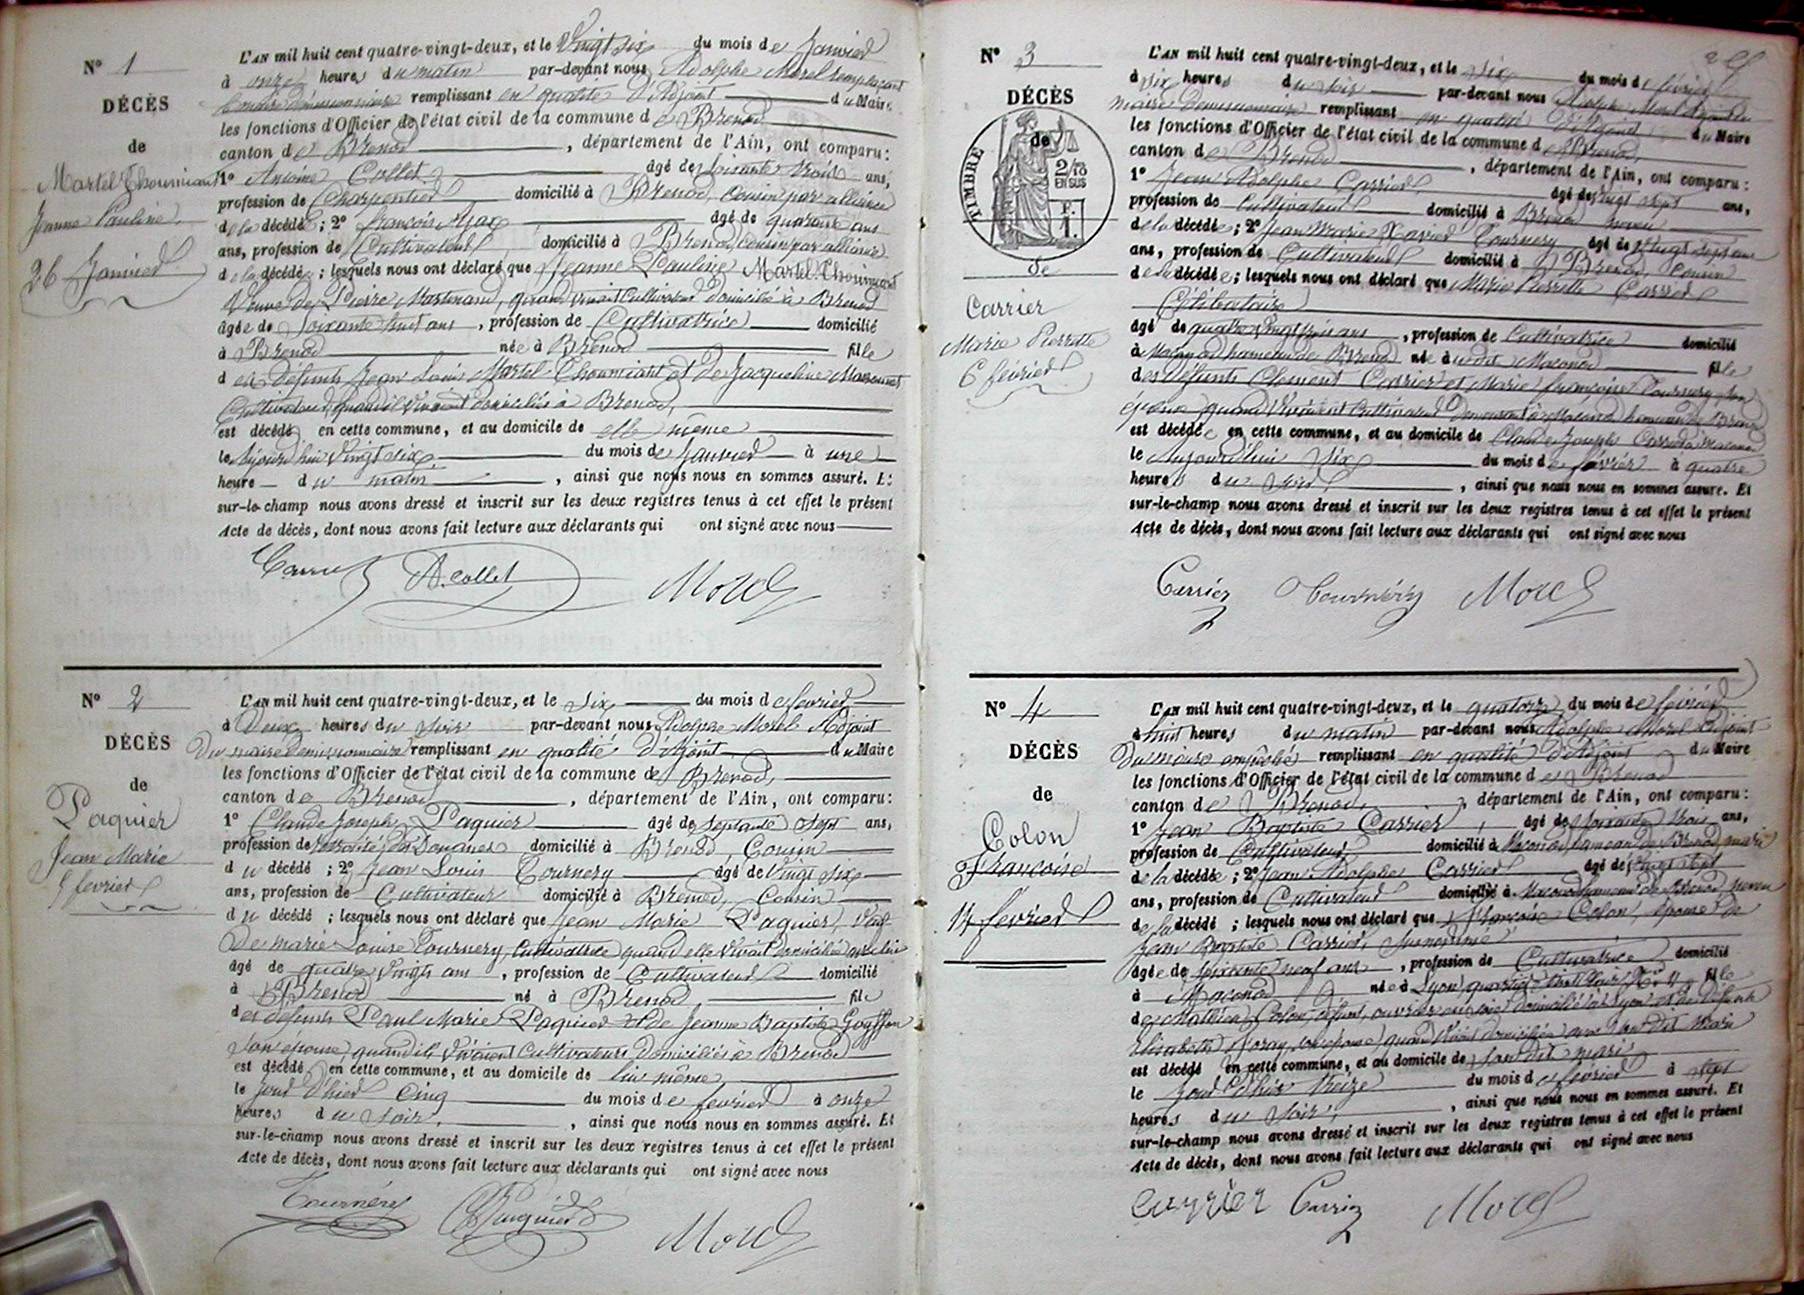 N° 1
DÉCÈS
de
Martel Thoumiant
Jeanne Pauline
26 Janvier
L'AN mil huit cent quatre-vingt-deux, et le Vingt six du mois de Janvier
à onze heures du matin par-devant nous Adolphe Morel remplaçant
le maire démissionnaire remplissant en qualité d'Adjoint du Maire
les fonctions d'Officier de l'état civil de la commune de Brenod
canton de Brenod, département de l'Ain, ont comparu:
1° Antoine Collet âgé de soixante trois ans,
profession de Charpentier domicilié à Brenod, cousin par alliance
de la décédée; 2° françois Ajax âgé de quarante ans
ans, profession de Cultivateur domicilié à Brenod cousin par alliance
de la décédée; lesquels nous ont déclaré que Jeanne Pauline Martel-Thoumiant
Veuve de Pierre Martinand, quand vivait Cultivateur domicilié à Brenod
âgée de soixante huit ans, profession de Cultivatrice domicilié
à Brenod née à Brenod fille
des défunts Jean Louis Martel Thoumiant et de Jacqueline
Cultivateurs quand ils vivaient domiciliés à Brenod,
est décédée en cette commune, et au domicile de elle même
le Aujourd'hui vingt six du mois de Janvier à une
heure du matin, ainsi que nous nous en sommes assuré. Et
sur-le-champ nous avons dressé et inscrit sur les deux registres tenus à cet effet le présent
Acte de décès, dont nous avons fait lecture aux déclarants qui ont signé avec nous
A. Collet Morel
N° 2
DÉCÈS
de
Paquier
Jean Marie
5 fevrier
L'AN mil huit cent quatre-vingt-deux, et le six du mois de fevrier
à Deux heures du soir par-devant nous Adolphe Morel Adjoint
Du maire demissionnaire remplissant en qualité d'Adjoint du Maire
les fonctions d'Officier de l'état civil de la commune de Brenod,
canton de Brenod, département de l'Ain, ont comparu:
1° Claude Joseph Paquier âgé de septante sept ans,
profession de retraité des Douanes domicilié à Brenod, Cousin
du décédé; 2° Jean Louis Tournery âgé de Vingt six
ans, profession de Cultivateur domicilié à Brenod, Cousin
du décédé; lesquels nous ont déclaré que Jean Marie Paquier, Veuf
De marie Louise Tournery, Cultivatrice quand elle vivait domiciliée avec lui
âgé de quatre vingts ans, profession de Cultivateur domicilié
à Brenod né à Brenod, fils
des defunts Paul Marie Paquier et de Jeanne Baptiste
son epouse, quand ils vivaient Cultivateurs domiciliés à Brenod
est décédé en cette commune, et au domicile de lui même
le jour d'hier Cinq du mois de fevrier à onze
heures du soir, ainsi que nous nous en sommes assuré. Et
sur-le-champ nous avons dressé et inscrit sur les deux registres tenus à cet effet le présent
Acte de décès, dont nous avons fait lecture aux déclarants qui ont signé avec nous
Tournéry Paquier Morel
N° 3
DÉCÈS
de
TIMBRE 2/10 EN SUS F. 1.
de
Carrier
Marie Pierrette
6 février
L'AN mil huit cent quatre-vingt-deux, et le six du mois de février
à six heures du soir par-devant nous Adolphe Morel
maire demissionnaire remplissant en qualité d'Adjoint du Maire
les fonctions d'Officier de l'état civil de la commune de Brenod,
canton de Brenod, département de l'Ain, ont comparu:
1° Jean Adolphe Carrier âgé de vingt sept ans,
profession de Cultivateur domicilié à Brenod neveu
de la décédée; 2° Jean Marie Xavier Tournery âgé de vingt sept ans
ans, profession de Cultivateur domicilié à Brenod, Cousin
de la décédée; lesquels nous ont déclaré que Marie Pierrette Carrier
Célibataire
âgé de quatre vingt trois ans, profession de Cultivatrice domicilié
à Maconod hameau de Brenod née à dit Maconod fille
des défunts Clement Carrier et Marie françoise Tournery son
épouse quand vivaient Cultivateurs demeurant à Maconod hameau de Brenod
est décédée en cette commune, et au domicile de Claude Joseph Carrier à Maconod
le Aujourdhui six du mois de février à quatre
heures du soir, ainsi que nous nous en sommes assuré. Et
sur-le-champ nous avons dressé et inscrit sur les deux registres tenus à cet effet le présent
Acte de décès, dont nous avons fait lecture aux déclarants qui ont signé avec nous
Carrier Tournéry Morel
N° 4
DÉCÈS
de
Colon
Françoise
février
L'AN mil huit cent quatre-vingt-deux, et le quatorze du mois de février
à huit heures du matin par-devant nous Adolphe Morel Adjoint
Du maire empêché remplissant en qualité d'Adjoint du Maire
les fonctions d'Officier de l'état civil de la commune de Brenod
canton de Brenod, département de l'Ain, ont comparu:
1° Jean Baptiste Carrier, âgé de soixante trois ans,
profession de Cultivateur domicilié à Maconod hameau de Brenod, mari
de la décédée; 2° Jean Adolphe Carrier âgé de vingt sept
ans, profession de Cultivateur domicilié à Maconod hameau de Brenod neveu
de la décédé; lesquels nous ont déclaré que françoise Colon, épouse de
Jean Baptiste Carrier, susnommé
âgée de soixante neuf ans, profession de Cultivatrice domicilié
à Maconod née à Lyon quartier N° 4 fille
de Mathieu Colon, défunt, domicilié à Lyon et de défunte
Elisabeth son épouse quand vivait domiciliée avec son dit mari
est décédé en cette commune, et au domicile de son dit mari
le jour d'hier treize du mois de février à sept
heures du soir, ainsi que nous nous en sommes assuré. Et
sur-le-champ nous avons dressé et inscrit sur les deux registres tenus à cet effet le présent
Acte de décès, dont nous avons fait lecture aux déclarants qui ont signé avec nous
Carrier Carrier Morel